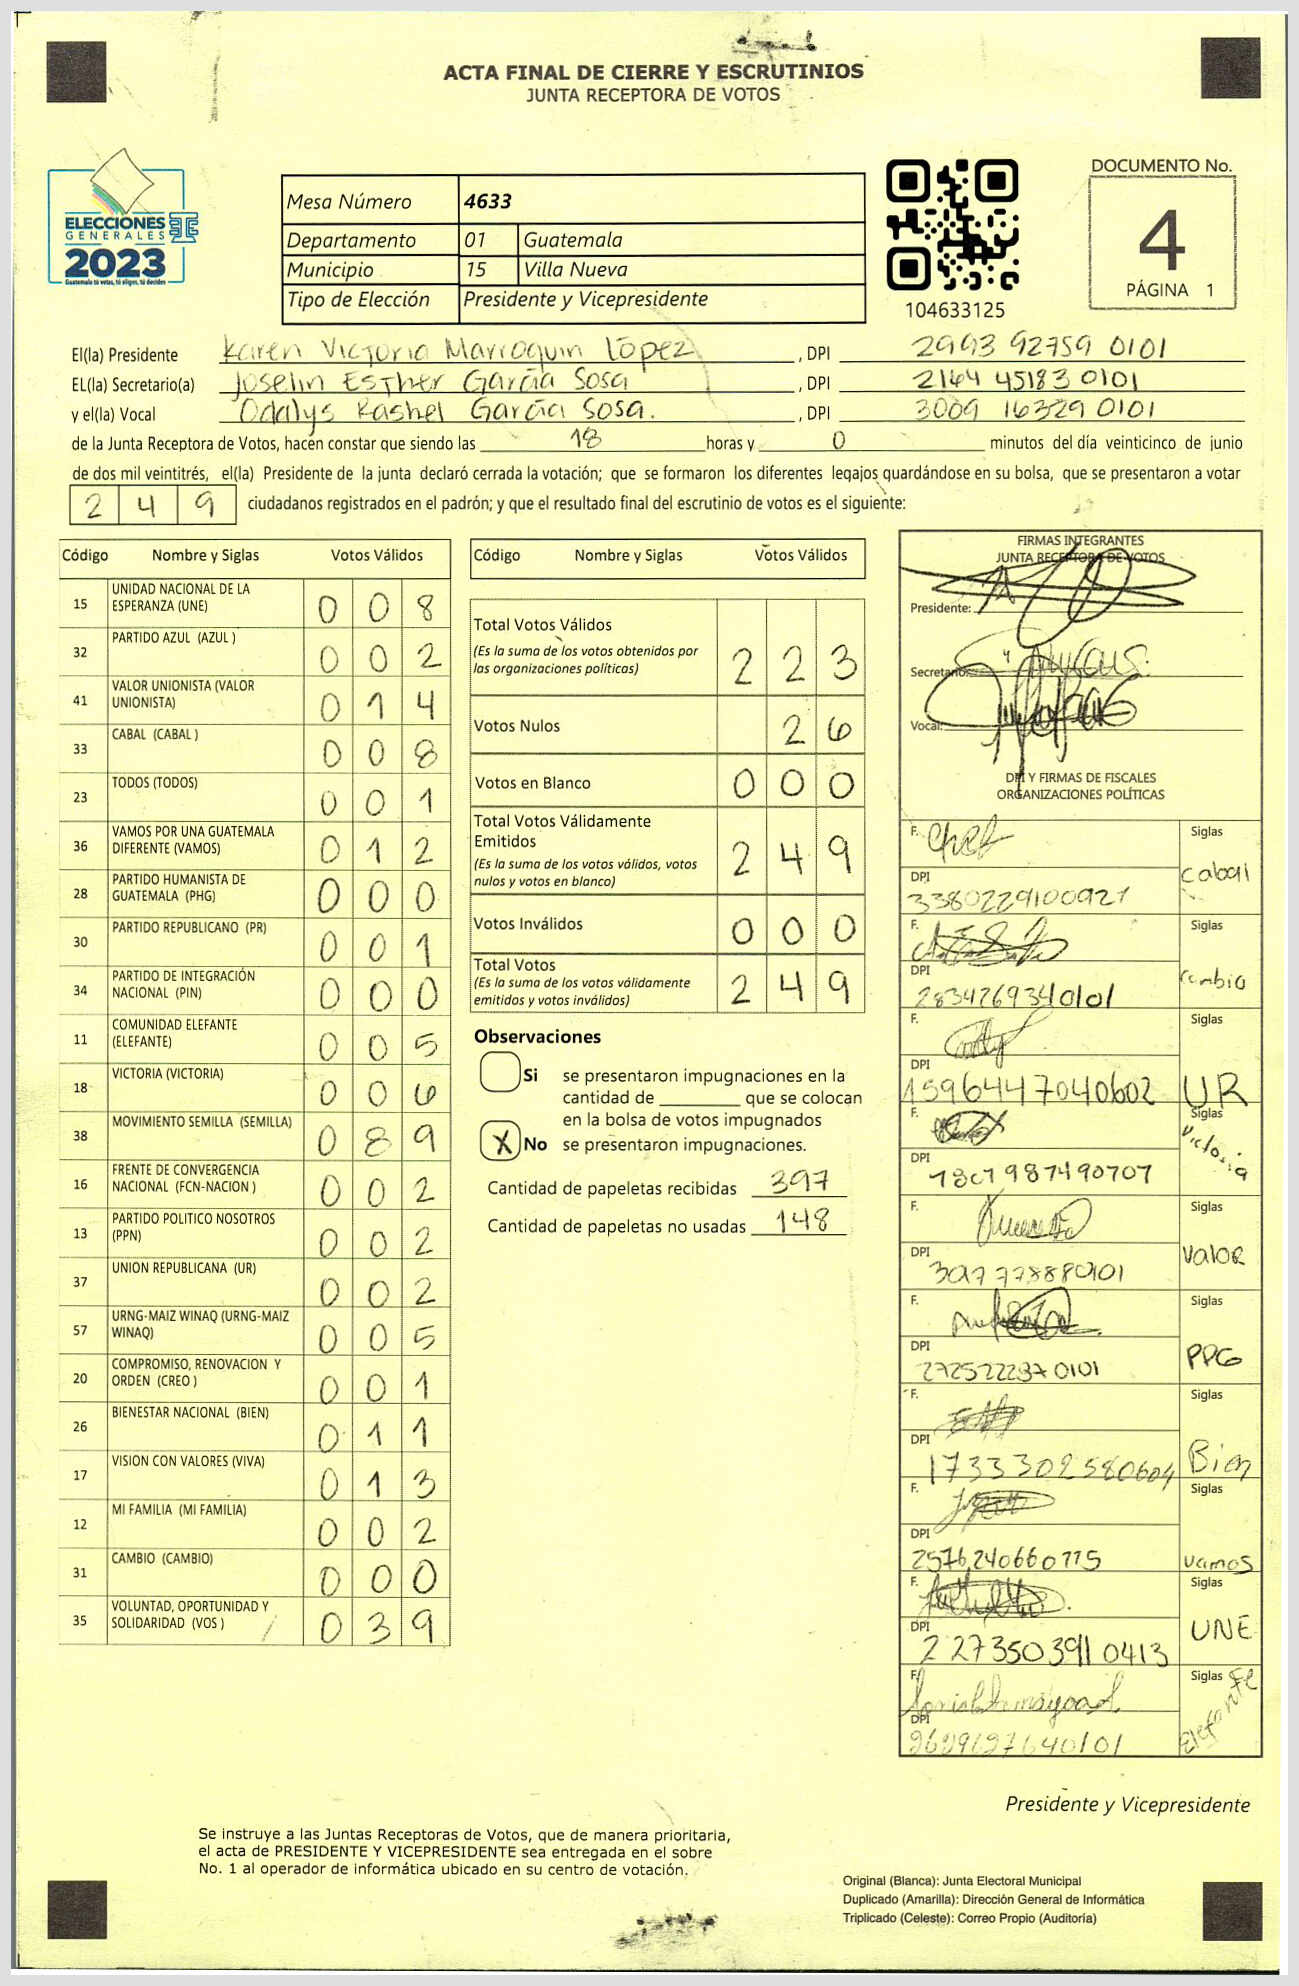 ACTA FINAL DE CIERRE Y ESCRUTINIOS
JUNTA RECEPTORA DE VOTOS
ELECCIONES
GENERALES
2023
Guatemala tú votas, tú eliges, tú decides
Mesa Número 4633
Departamento 01 Guatemala
Municipio 15 Villa Nueva
Tipo de Elección Presidente y Vicepresidente
104633125
DOCUMENTO No.
4
PÁGINA 1
El(la) Presidente Karen Victoria Marroquin López, DPI 2993 92759 0101
EL(la) Secretario(a) Joselin Esther García Sosa, DPI 2164 45183 0101
y el(la) Vocal Odalys Rashel García Sosa., DPI 3009 16329 0101
de la Junta Receptora de Votos, hacen constar que siendo las 18 horas y 0 minutos del día veinticinco de junio
de dos mil veintitrés, el(la) Presidente de la junta declaró cerrada la votación; que se formaron los diferentes legajos guardándose en su bolsa, que se presentaron a votar
249 ciudadanos registrados en el padrón; y que el resultado final del escrutinio de votos es el siguiente:
Código Nombre y Siglas Votos Válidos
15 UNIDAD NACIONAL DE LA ESPERANZA (UNE) 0 0 8
32 PARTIDO AZUL (AZUL ) 0 0 2
41 VALOR UNIONISTA (VALOR UNIONISTA) 0 1 4
33 CABAL (CABAL ) 0 0 8
23 TODOS (TODOS) 0 0 1
36 VAMOS POR UNA GUATEMALA DIFERENTE (VAMOS) 0 1 2
28 PARTIDO HUMANISTA DE GUATEMALA (PHG) 0 0 0
30 PARTIDO REPUBLICANO (PR) 0 0 1
34 PARTIDO DE INTEGRACIÓN NACIONAL (PIN) 0 0 0
11 COMUNIDAD ELEFANTE (ELEFANTE) 0 0 5
18 VICTORIA (VICTORIA) 0 0 6
38 MOVIMIENTO SEMILLA (SEMILLA) 0 8 9
16 FRENTE DE CONVERGENCIA NACIONAL (FCN-NACION ) 0 0 2
13 PARTIDO POLITICO NOSOTROS (PPN) 0 0 2
37 UNION REPUBLICANA (UR) 0 0 2
57 URNG-MAIZ WINAQ (URNG-MAIZ WINAQ) 0 0 5
20 COMPROMISO, RENOVACION Y ORDEN (CREO ) 0 0 1
26 BIENESTAR NACIONAL (BIEN) 0 1 1
17 VISION CON VALORES (VIVA) 0 1 3
12 MI FAMILIA (MI FAMILIA) 0 0 2
31 CAMBIO (CAMBIO) 0 0 0
35 VOLUNTAD, OPORTUNIDAD Y SOLIDARIDAD (VOS ) 0 3 9
Código Nombre y Siglas Votos Válidos
Total Votos Válidos 2 2 3
(Es la suma de los votos obtenidos por
las organizaciones políticas)
Votos Nulos 2 6
Votos en Blanco 0 0 0
Total Votos Válidamente
Emitidos 2 4 9
(Es la suma de los votos válidos, votos
nulos y votos en blanco)
Votos Inválidos 0 0 0
Total Votos 2 4 9
(Es la suma de los votos válidamente
emitidos y votos inválidos)
Observaciones
Si se presentaron impugnaciones en la
cantidad de ________ que se colocan
en la bolsa de votos impugnados
X No se presentaron impugnaciones.
Cantidad de papeletas recibidas 397
Cantidad de papeletas no usadas 148
FIRMAS INTEGRANTES
JUNTA RECEPTORA DE VOTOS
Presidente:
Secretario:
Vocal:
DPI Y FIRMAS DE FISCALES
ORGANIZACIONES POLÍTICAS
F. Siglas
DPI Cabal
3380229100921
F. Siglas
DPI cambio
2834769340101
F. Siglas
DPI
1596447040602 UR
F. Siglas
DPI Victoria
1807987490707
F. Siglas
DPI Valor
F. Siglas
DPI PPG
F. Siglas
DPI Bien
1733302580604
F. Siglas
DPI
2576240660775 vamos
F. Siglas
DPI UNE
2273503910413
F. Siglas
DPI Elefante
2629627640101
Presidente y Vicepresidente
Se instruye a las Juntas Receptoras de Votos, que de manera prioritaria,
el acta de PRESIDENTE Y VICEPRESIDENTE sea entregada en el sobre
No. 1 al operador de informática ubicado en su centro de votación.
Original (Blanca): Junta Electoral Municipal
Duplicado (Amarilla): Dirección General de Informática
Triplicado (Celeste): Correo Propio (Auditoría)